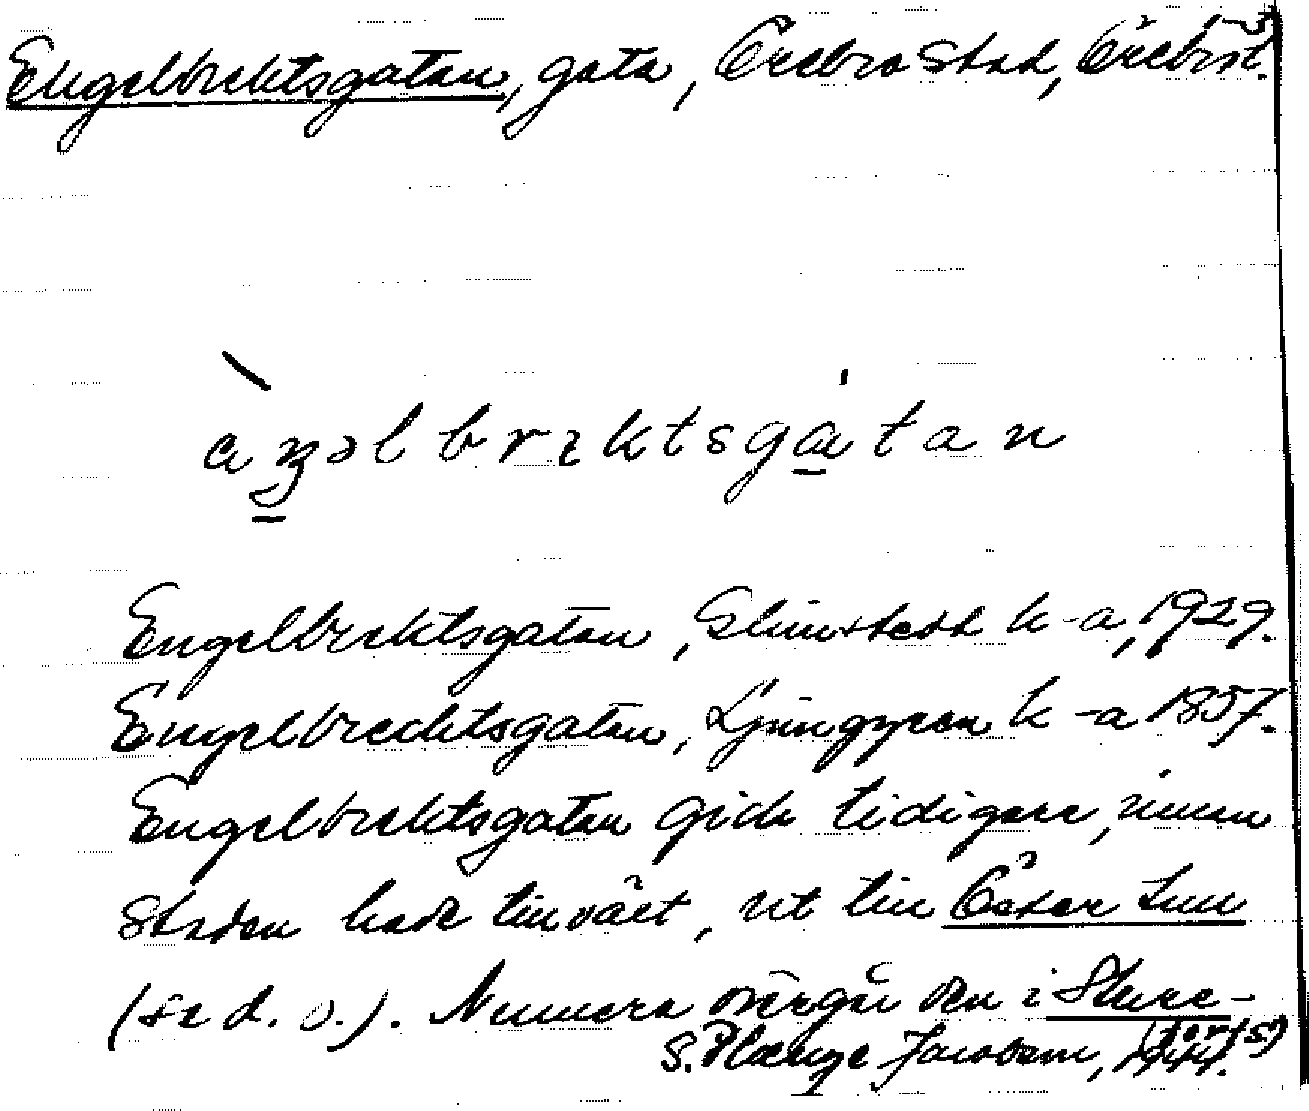 Engelbrektsgatan, gata, Örebro stad, Örebro l.
aŋəlbrɛktsgatan
Engelbrektsgatan, Elmstedt k-a, 1929.
Engelbrecktsgatan, Ljunggren k-a 1857.
Engelbrektsgatan gick tidigare, innan
staden hade tillväxt, ut till Öster Lun
(se d. o.). Numera övergår den i Sture-
(forts)
S. Jacobsson, 1944.